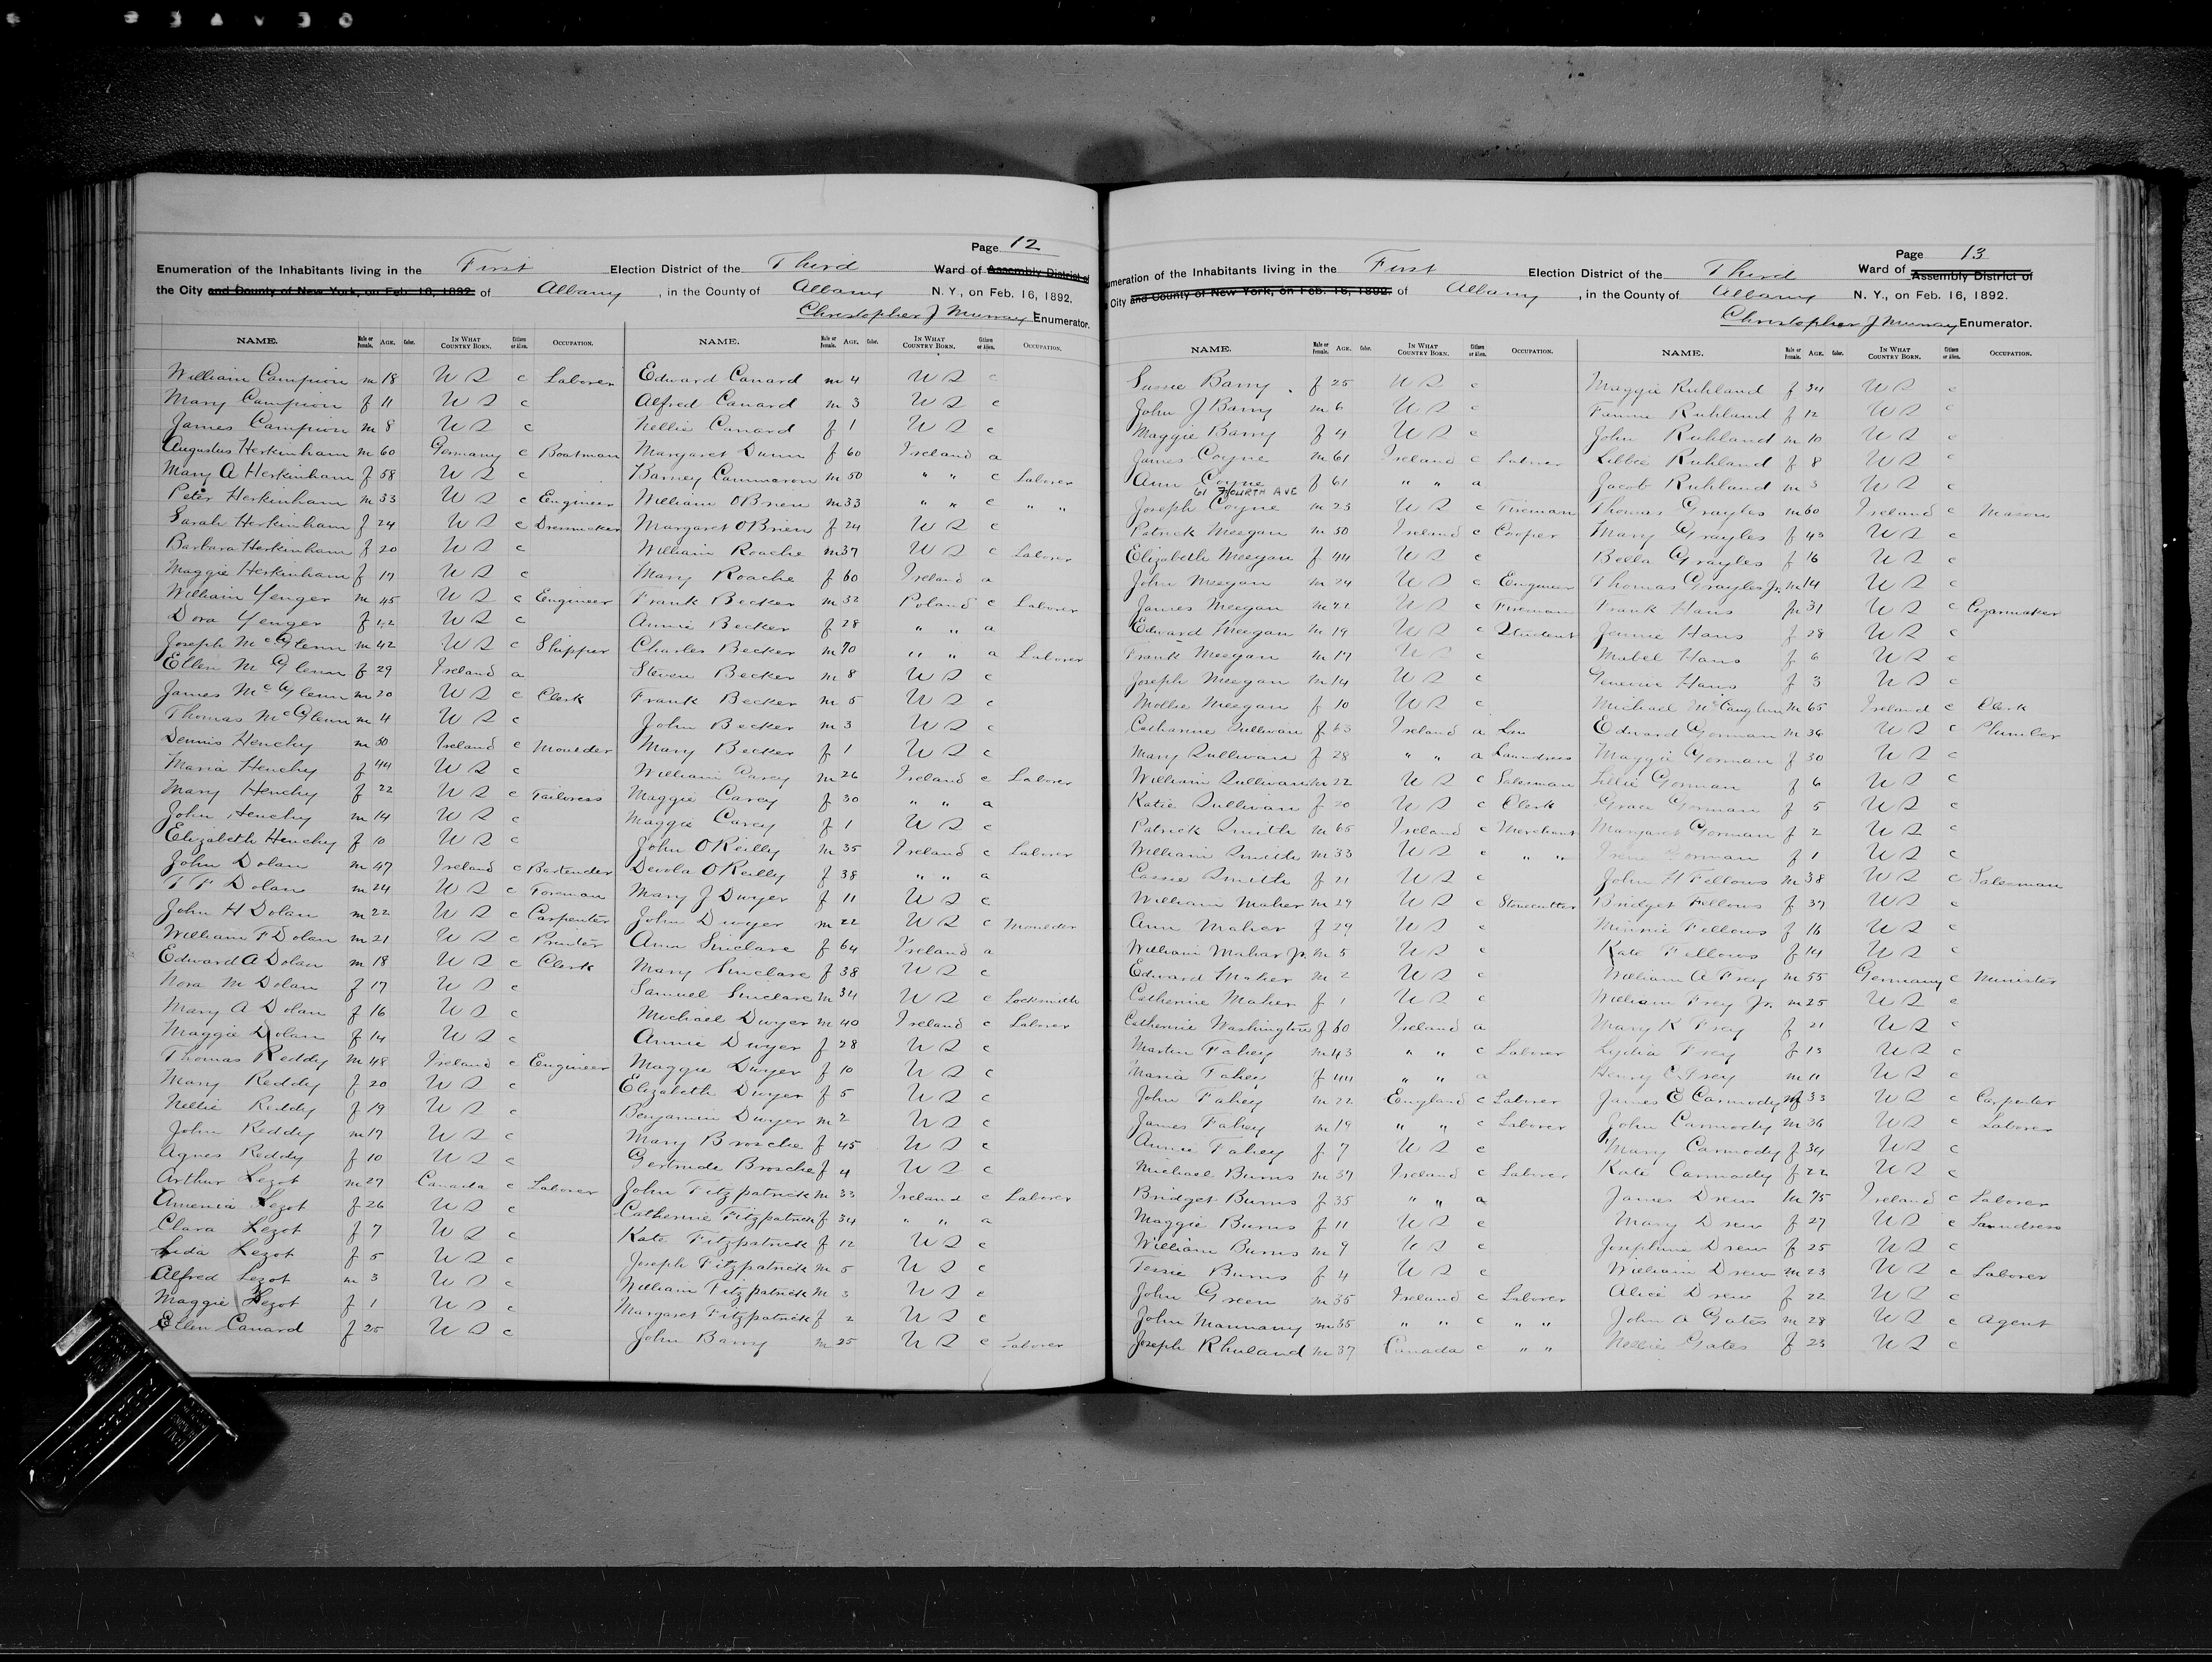 Page 12
Enumeration of the Inhabitants living in the First Election District of the Third Ward of Assembly District of
the City and County of New York, on Feb. 16, 1892. of Albany, in the County of Albany N. Y., on Feb. 16, 1892.
Christopher J Murray Enumerator.
NAME. Male or Female. AGE. Color. IN WHAT COUNTRY BORN. Citizen or Alien. OCCUPATION.
William Campion m 18 U S c Laborer
Mary Campion f 11 U S c
James Campion m 8 U S c
Augustus Herkinham m 60 Germany c Boatman
Mary A Herkinham f 58 U S c
Peter Herkinham m 33 U S c Engineer
Sarah Herkinham f 24 U S c Dressmcker
Barbara Herkinham f 20 U S c
Maggie Herkinham f 17 U S c
William Yenger m 45 U S c Engineer
Dora Yenger f U S c
Joseph McGlenn m 42 U S c Shipper
Ellen McGlenn f 29 Ireland a
James McGlenn m 20 U S c Clerk
Thomas McGlenn m 4 U S c
Dennis Henchy m 50 Ireland c Moulder
Maria Henchy f 44 U S c
Mary Henchy f 22 U S c Tailoress
John Henchy m 14 U S c
Elizabeth Henchy f 10 U S c
John Dolan m 47 Ireland c Bartender
T F Dolan m 24 U S c Foreman
John H Dolan m 22 U S c Carpenter
William F Dolan m 21 U S c Printer
Edward A Dolan m 18 U S c Clerk
Nora M Dolan f 17 U S c
Mary A Dolan f 16 U S c
Maggie Dolan f 14 U S c
Thomas Reddy m 48 Ireland c Engineer
Mary Reddy f 20 U S c
Nellie Reddy f 19 U S c
John Reddy m 17 U S c
Agnes Reddy f 10 U S c
Arthur Lezot m 27 Canada c Laborer
Amenia Lezot f 26 U S c
Clara Lezot f 7 U S c
Lida Lezot f 5 U S c
Alfred Lezot m 3 U S c
Maggie Lezot f 1 U S c
Ellen Canard f 25 U S c
NAME. Male or Female. AGE. Color. IN WHAT COUNTRY BORN. Citizen or Alien. OCCUPATION.
Edward Canard m 4 U S c
Alfred Canard m 3 U S c
Nellie Canard f 1 U S c
Margaret Dunn f 60 Ireland a
Barney Cammeron m 50 " " c Laborer
William OBrien m 33 " " c " "
Margaret OBrien f 24 U S c
William Roache m 37 U S c Laborer
Mary Roache f 60 Ireland a
Frank Becker m 32 Poland c Laborer
Annie Becker f 28 " " a
Charles Becker m 70 " " a Laborer
Steven Becker m 8 U S c
Frank Becker m 5 U S c
John Becker m 3 U S c
Mary Becker f 1 U S c
William Carey m 26 Ireland c Laborer
Maggie Carey f 30 " " a
Maggie Carey f 1 U S c
John OReilly m 35 Ireland c Laborer
Devola OReilly f 38 " " a
Mary J Dwyer f 11 U S c
John Dwyer m 22 U S c Moulder
Ann Sinclare f 64 Ireland a
Mary Sinclare f 38 U S c
Samuel Sinclare m 34 U S c Locksmith
Michael Dwyer m 40 Ireland c Laborer
Annie Dwyer f 28 U S c
Maggie Dwyer f 10 U S c
Elizabeth Dwyer f 5 U S c
Benjamin Dwyer m 2 U S c
Mary Brosche f 45 U S c
Gertrude Brosche f 4 U S c
John Fitzpatrick m 33 Ireland c Laborer
Catherine Fitzpatrick f 34 " " a
Kate Fitzpatrick f 12 U S c
Joseph Fitzpatrick m 5 U S c
William Fitzpatrick m 3 U S c
Margaret Fitzpatrick f 2 U S c
John Barry m 25 U S c Laborer
Page 13
umeration of the Inhabitants living in the First Election District of the Third Ward of Assembly District of
City and County of New York, on Feb. 16, 1892. of Albany, in the County of Albany N. Y., on Feb. 16, 1892.
Christopher J Murray Enumerator.
NAME. Male or Female. AGE. Color. IN WHAT COUNTRY BORN. Citizen or Alien. OCCUPATION.
Sussie Barry f 25 U S c
John J Barry m 6 U S c
Maggie Barry f 4 U S c
James Coyne m 61 Ireland c Laborer
Ann Coyne f 61 " " a
61 FOURTH AVE
Joseph Coyne m 23 U S c Fireman
Patrick Meegan m 50 Ireland c Cooper
Elizabeth Meegan f 44 U S c
John Meegan m 24 U S c Engineer
James Meegan m 22 U S c Fireman
Edward Meegan m 19 U S c Student
Frank Meegan m 17 U S c
Joseph Meegan m 14 U S c
Mollie Meegan f 10 U S c
Catharine Sullivan f 63 Ireland a
Mary Sullivan f 28 " " a Laundress
William Sullivan m 22 U S c Salesman
Katie Sullivan f 20 U S c Clerk
Patrick Smith m 65 Ireland c Merchant
William Smith m 33 U S c " "
Cassie Smith f 21 U S c
William Maher m 29 U S c Stonecutter
Ann Maher f 29 U S c
William Mahar Jr. m 5 U S c
Edward Maher m 2 U S c
Catherine Maher f 1 U S c
Catherine Washington f 60 Ireland a
Martin Fahey m 43 " " c Laborer
Maria Fahey f 44 " " a
John Fahey m 22 England c Laborer
James Fahey m 19 " " c Laborer
Annie Fahey f 7 U S c
Michael Burns m 37 Ireland c Laborer
Bridget Burns f 35 " " a
Maggie Burns f 11 U S c
William Burns m 9 U S c
Tessie Burns f 4 U S c
John Green m 35 Ireland c Laborer
John Mannany m 35 " " c " "
Joseph Rhuland m 37 Canada c " "
NAME. Male or Female. AGE. Color. IN WHAT COUNTRY BORN. Citizen or Alien. OCCUPATION.
Maggie Ruhland f 34 U S c
Fannie Ruhland f 12 U S c
John Ruhland m 10 U S c
Libbie Ruhland f 8 U S c
Jacob Ruhland m 3 U S c
Thomas Grayles m 60 Ireland c Mason
Mary Grayles f 43 U S c
Bella Grayles f 16 U S c
Thomas Grayles Jr. m 14 U S c
Frank Hans m 31 U S c Cigarmaker
Jennie Hans f 28 U S c
Mabel Hans f 6 U S c
Genevive Hans f 3 U S c
Michael m 65 Ireland c Clerk
Edward Gorman m 36 U S c Plumber
Maggie Gorman f 30 U S c
Lillie Gorman f 6 U S c
Grace Gorman f 5 U S c
Margaret Gorman f 2 U S c
Irene Gorman f 1 U S c
John H Fellows m 38 U S c Salesman
Bridget Fellows f 37 U S c
Minnie Fellows f 16 U S c
Kate Fellows f 14 U S c
William A Frey m 55 Germany c Minister
William Frey Jr. m 25 U S c
Mary K Frey f 21 U S c
Lydia Frey f 13 U S c
Henry C Frey m 11 U S c
James E Carmody 33 U S c Carpenter
John Carmody m 36 U S c Laborer
Mary Carmody f 34 U S c
Kate Carmody f 22 U S c
James Drew m 75 Ireland c Laborer
Mary Drew f 27 U S c Laundress
Josephine Drew f 25 U S c
William Drew m 23 U S c Laborer
Alice Drew f 22 U S c
John A Gates m 28 U S c Agent
Nellie Gates f 23 U S c